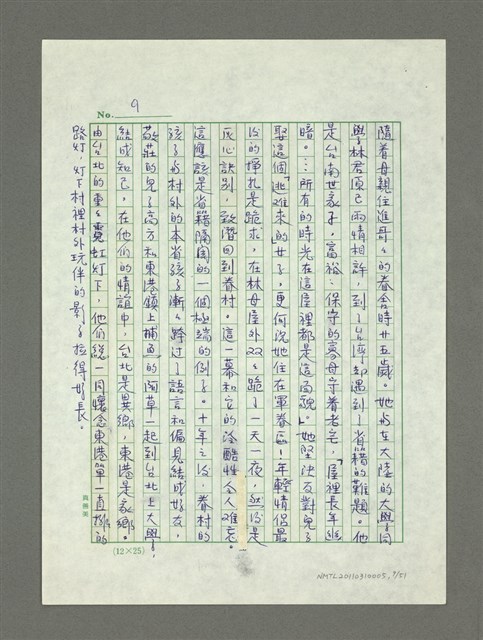 No. 9
隨着母親住進哥々的眷舍時廿五歲。她与在大陸的大學同
學林君原已兩情相許，到了台灣却遇到了省籍的難題。他
是台南世家子，富裕、保守的寡母守着老宅，「屋裡長年幽
暗。…所有的時光在這屋裡都是這面貌」她堅決反對兒子
娶這個「逃難來」的女子，更何況她住在軍眷區！年輕情侶最
後的掙扎是跪求，在林母屋外双々跪了一天一夜，然後是
灰心訣別，致潛回到眷村。這一幕和它的冷酷性令人难忘。
這應該是省籍隔閡的一個極端的例子。十年之後，眷村的
孩子与村外的本省孩子漸々跨过了語言和偏見結成好友，
敬莊的兒子高方和東港鎮上捕魚的阿草一起到台北上大學，
結成知己，在他们的情誼中，台北是異鄉，東港是家鄉。
由台北的重々霓虹灯下，他们總一同懷念東港單一直排的
路灯，灯下村裡村外玩伴的影子拉得好長。
(12×25)
NMTL20110310005, 9/51